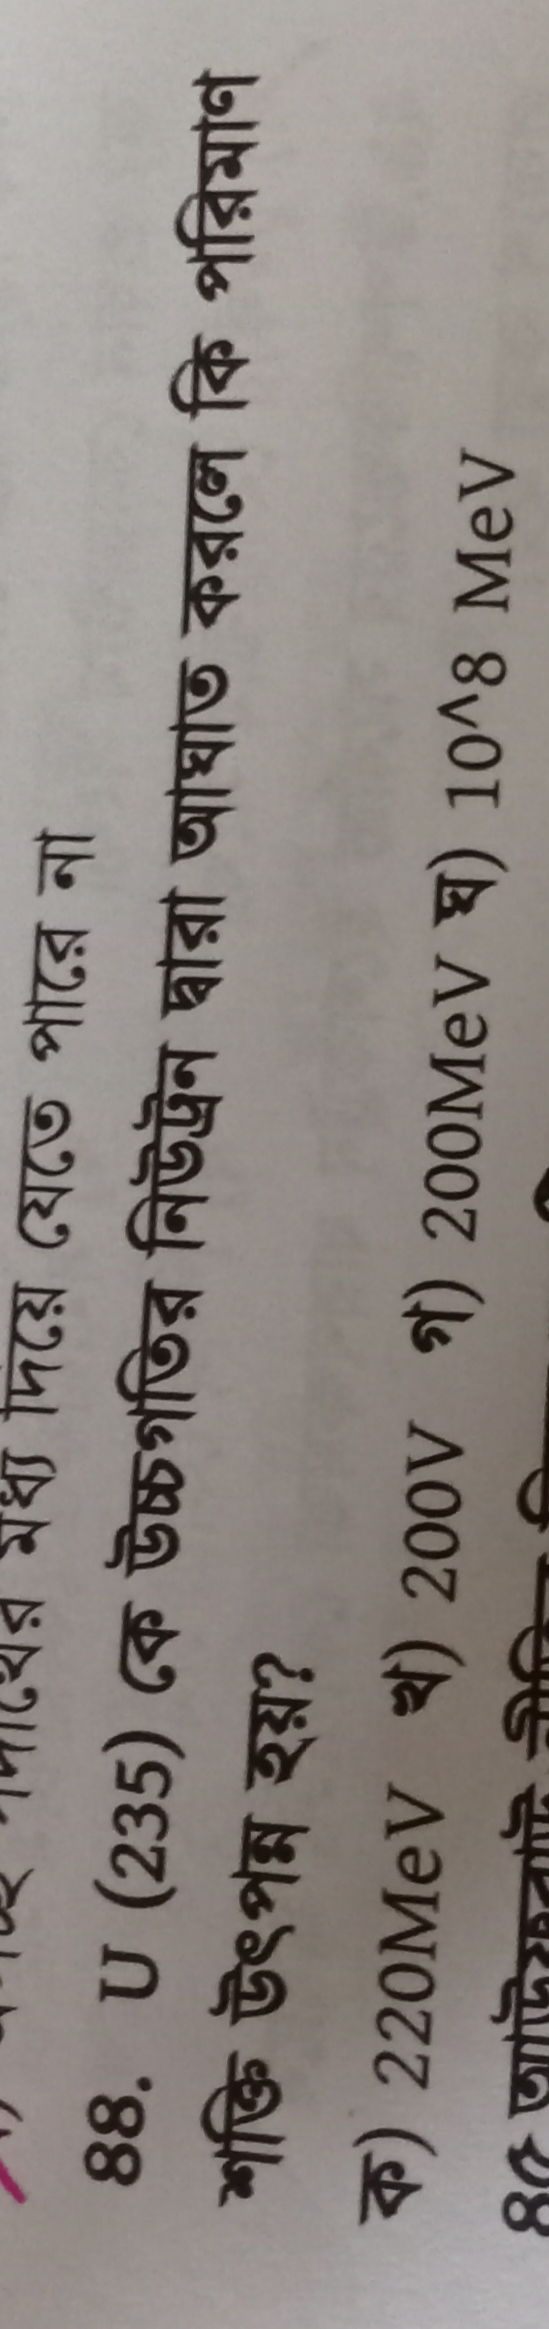 মধ্য দিয়ে যেতে পারে না
৪৪. U (235) কে উচ্চগতির নিউট্রন দ্বারা আঘাত করলে কি পরিমাণ
শক্তি উৎপন্ন হয়?
ক) 220MeV খ) 200V গ) 200MeV ঘ) 10^8 MeV
৪৫